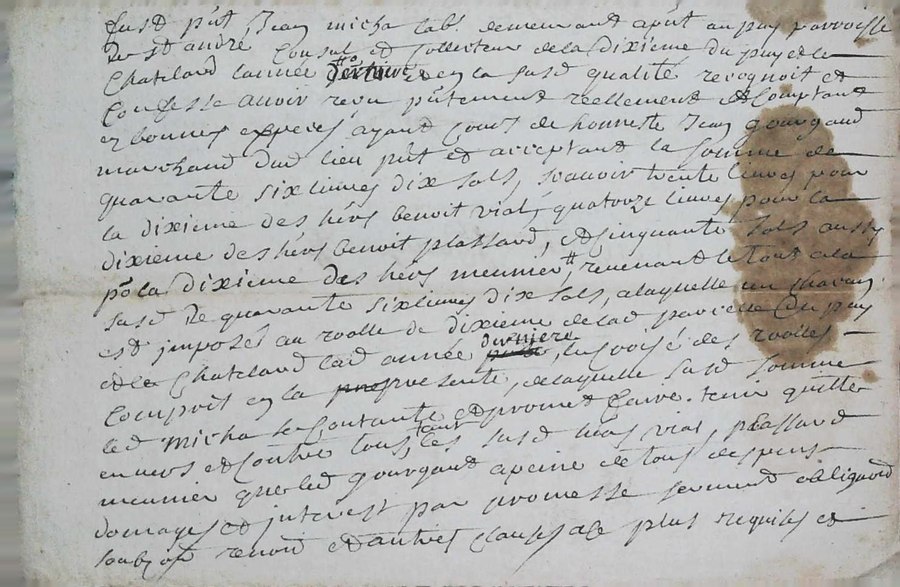 fust p'nt Jean micha lab.r demeurant ap'nt au puy parroisse
de st andré, Consul et Collecteur de la dixieme du puy et le
Chatelard lannée derniere et en la susd qualité recognoit et
Confesse avoir reçu p'ntement reellement et Comptant
en bonnes especes ayant Cours de honneste Jean gourgaud
marchand dud lieu p'nt et acceptant la somme de
quarante six livres dix sols, scavoir trente livres pour
la dixieme des hers benoit vial, quatorze livres pour la
dixieme des hers benoit plassard, et Cinquante sols aussy
po.r la dixieme des hers meunier, revenant le tout a la
susd de quarante six livres dix sols, a laquelle un chacun
est imposés au roolle de dixieme de lad parcelle du puy
et le Chatelard lad année derniere, des roolles
Compris en la presente, de laquelle susd somme
led micha se Contante et promet faire tenir quitte
envers et Contre tous, tant les susd hers vial, plassard
meunier que led gourgaud a peine de tous despens
domages et interest par promesse serment obligaond
soubzon renon et autres Clauses a ce plus requises et